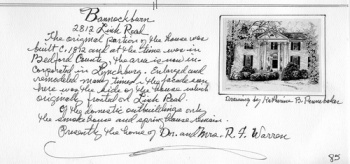 Bannockburn
2812 Link Road.
The original portion of the house was
built c. 1812 and at the time was in
Bedford County. The area is now in-
corporated in Lynchburg. Enlarged and
remodeled many times. The facade seen
here was the side of the house which
originally fronted on Link Road.
Of the domestic outbuildings only
the smokehouse and spring house remain.
Presently the home of Dr. and Mrs. R. F. Warren
Drawing by Katherine B. Pannebaker
85